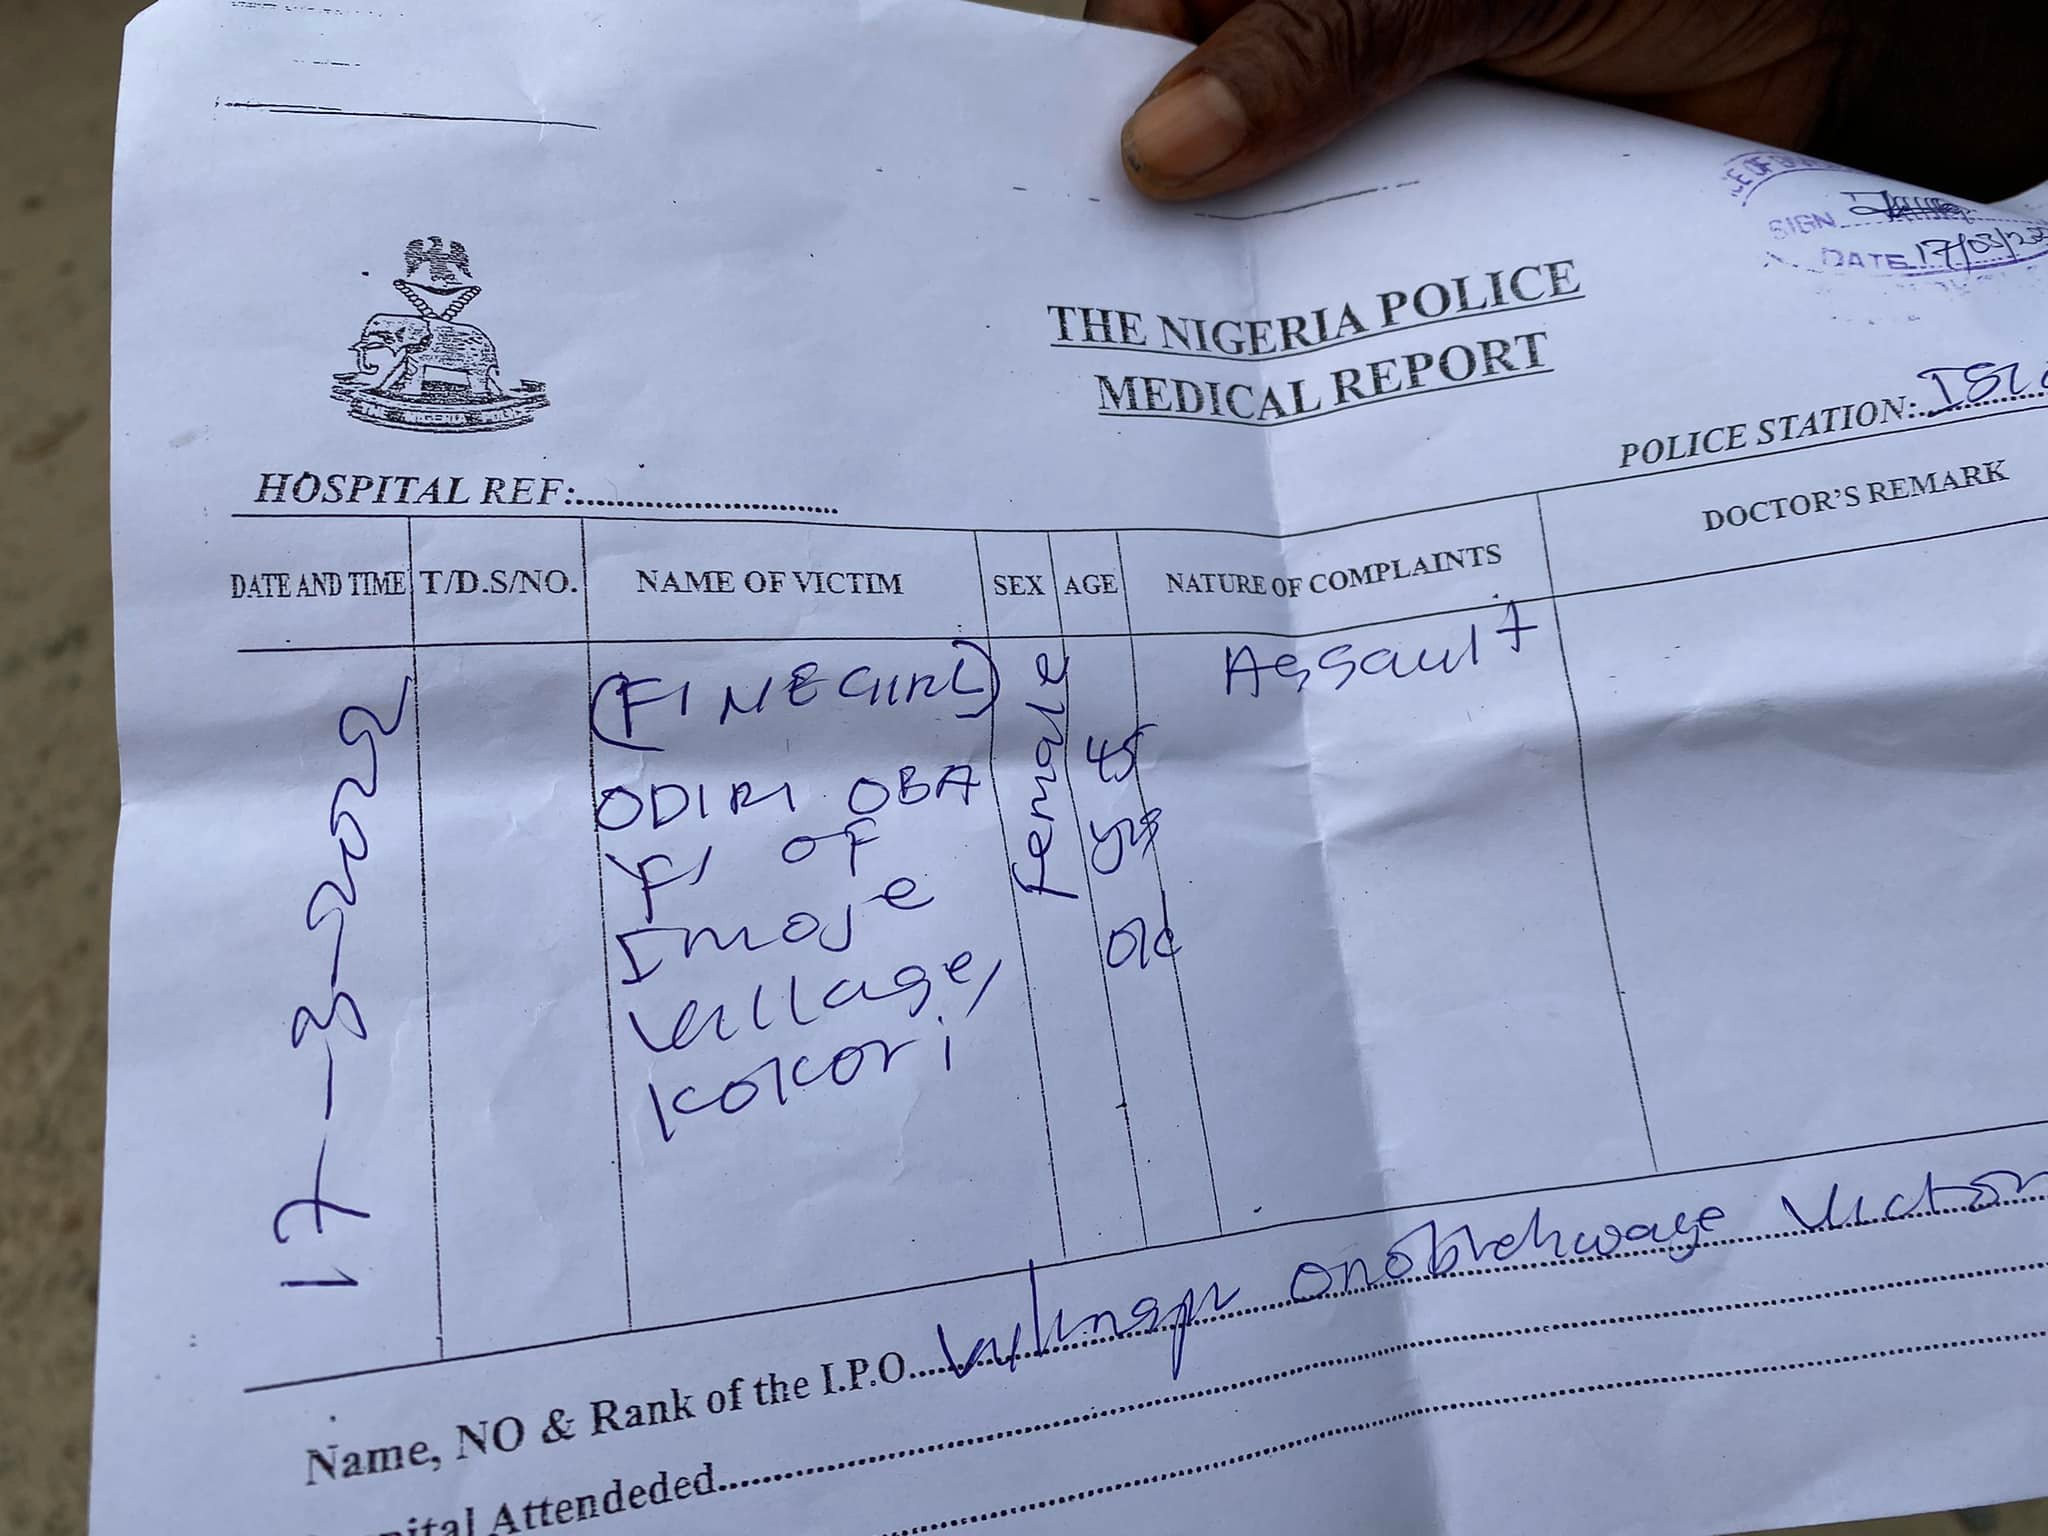 SIGN
DATE 17/03/22
THE NIGERIA POLICE
MEDICAL REPORT
HOSPITAL REF:
POLICE STATION:
DATE AND TIME T/D.S/NO. NAME OF VICTIM SEX AGE NATURE OF COMPLAINTS DOCTOR'S REMARK
17-3-2022
(FINEGIRL)
ODIRI OBA
'F' OF
Imoje
Village,
Kokori
female
45
yrs
old
Assault
Name, NO & Rank of the I.P.O. W/Inspr Onobrehwaye Victor
Attendeded